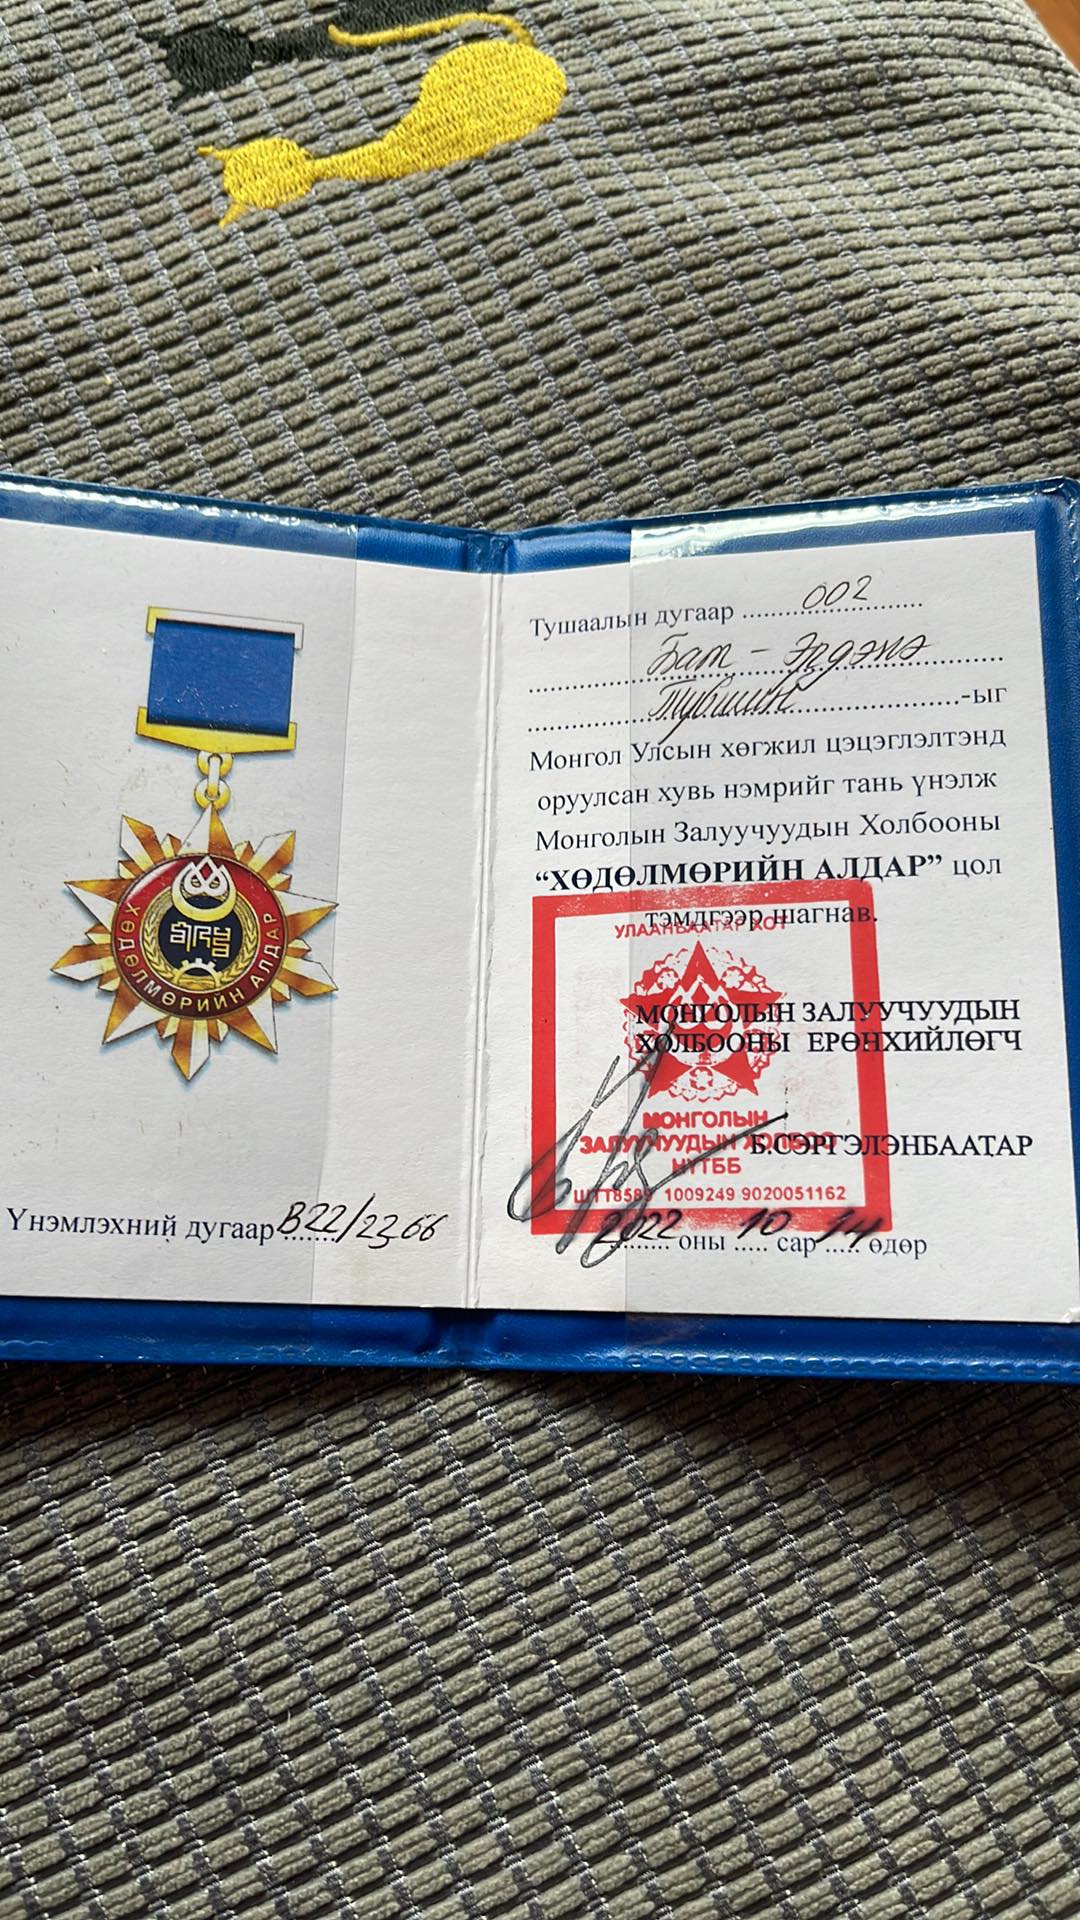 ХӨДӨЛМӨРИЙН АЛДАР
Үнэмлэхний дугаар В22/2366
Тушаалын дугаар 002
Бат - Эрдэнэ
Түвшин -ыг
Монгол Улсын хөгжил цэцэглэлтэнд
оруулсан хувь нэмрийг тань үнэлж
Монголын Залуучуудын Холбооны
“ХӨДӨЛМӨРИЙН АЛДАР” цол
тэмдгээр шагнав.
УЛААНБААТАР ХОТ
МОНГОЛЫН ЗАЛУУЧУУДЫН
ХОЛБООНЫ ЕРӨНХИЙЛӨГЧ
МОНГОЛЫН
ЗАЛУУЧУУДЫН ХОЛБОО
Б.СЭРГЭЛЭНБААТАР
НҮТББ
1009249 9020051162
2022 оны 10 сар 14 өдөр